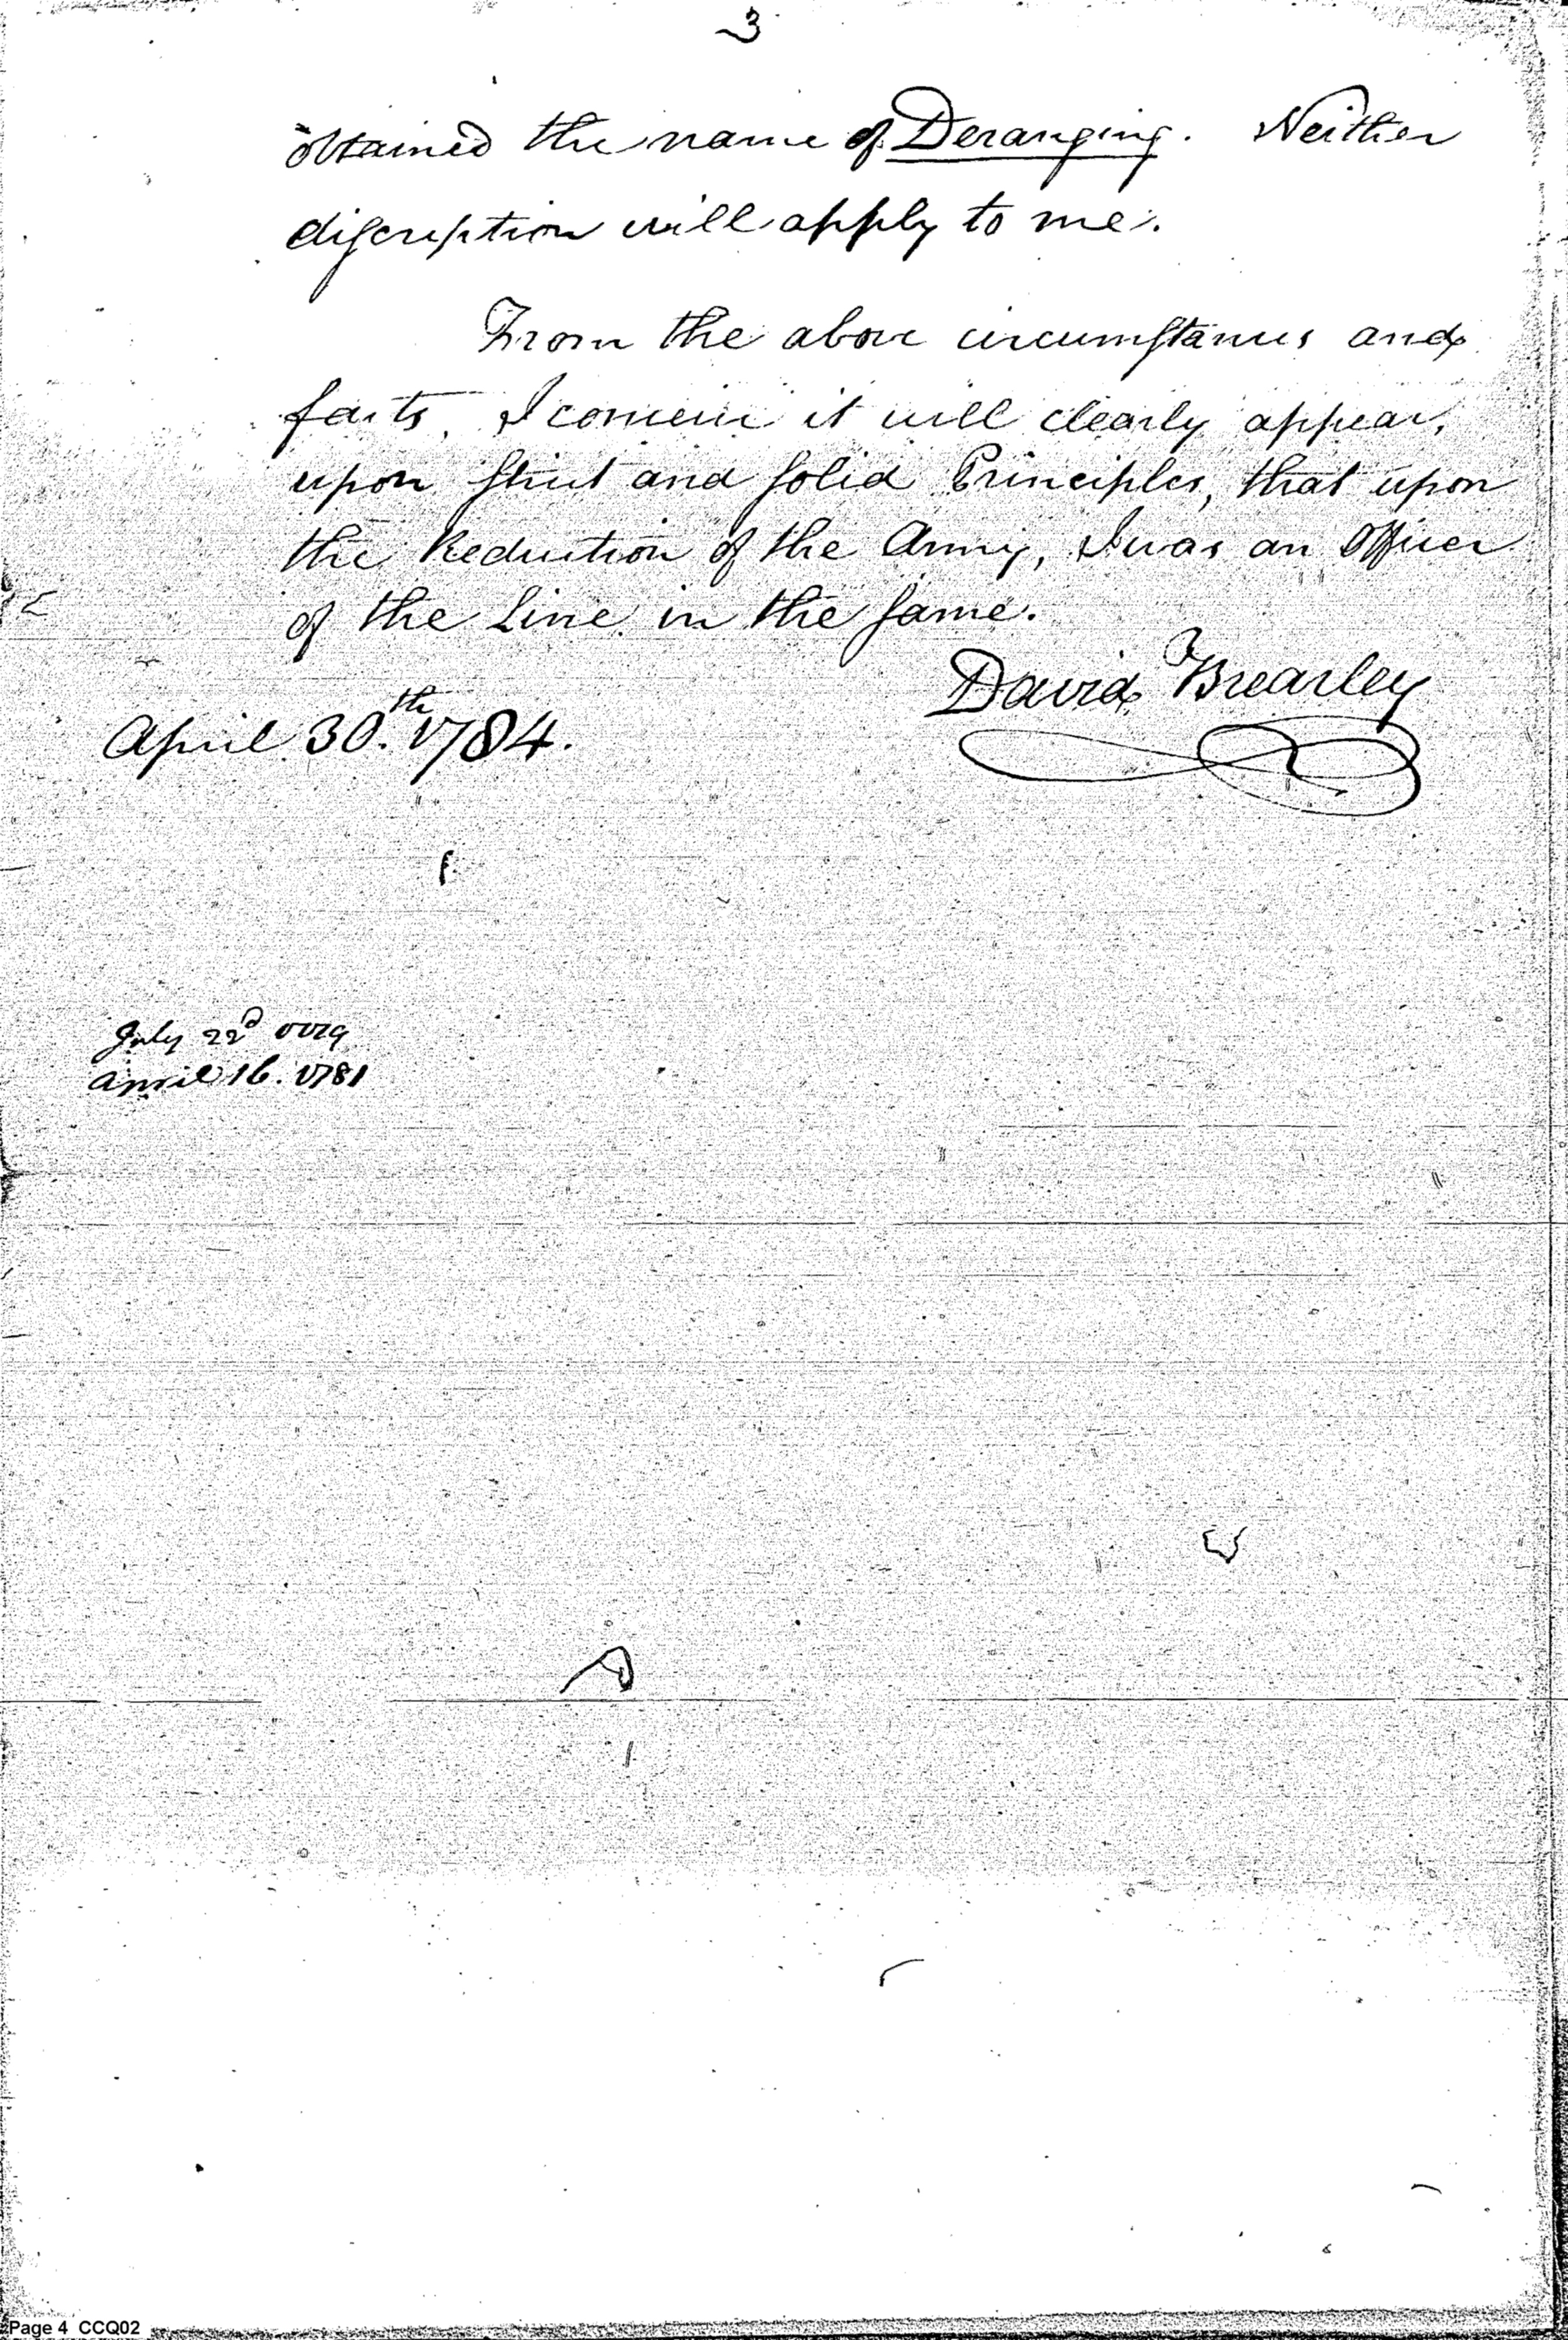 3
obtained the name of Deranging. Neither
discription will apply to me.
From the above circumstances and
facts, I conceive it will clearly appear,
upon strict and solid Principles, that upon
the Reduction of the Army, I was an Officer
of the Line in the same.
David Brearley
April 30.th 1784.
July 22d 1779
April 16. 1781
Page 4 CCQ02